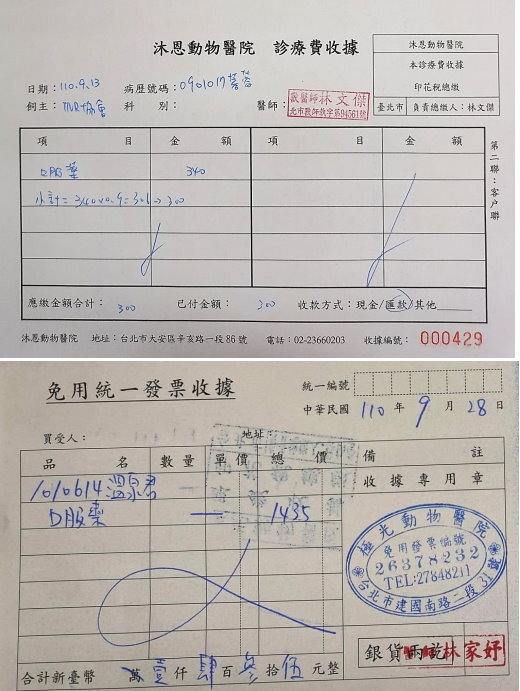 沐恩動物醫院 診療費收據
沐恩動物醫院
本診療費收據
印花稅總繳
臺北市 負責總繳人：林文傑
日期：110.9.13 病歷號碼：0901017蓉蓉
飼主：TNR協會 科 別： 醫師：獸醫師林文傑
項 目 金 額 項 目 金 額
口服藥 340
小計=340×0.9=306→300
第二聯：客戶聯
應繳金額合計：300 已付金額：300 收款方式：現金/匯款/其他
沐恩動物醫院 地址：台北市大安區辛亥路一段86號 電話：02-23660203 收據編號：000429
免用統一發票收據
統一編號
中華民國 110 年 9 月 28 日
買受人： 地址：
品 名 數量 單價 總 價 備 註
1010614溫泉君 收據專用章
口服藥 一 1435
極光動物醫院
免用發票編號
26378232
TEL:27848211
台北市建國南路二段31號
銀貨兩訖 林家妤
合計新臺幣 萬壹仟肆百參拾伍元整